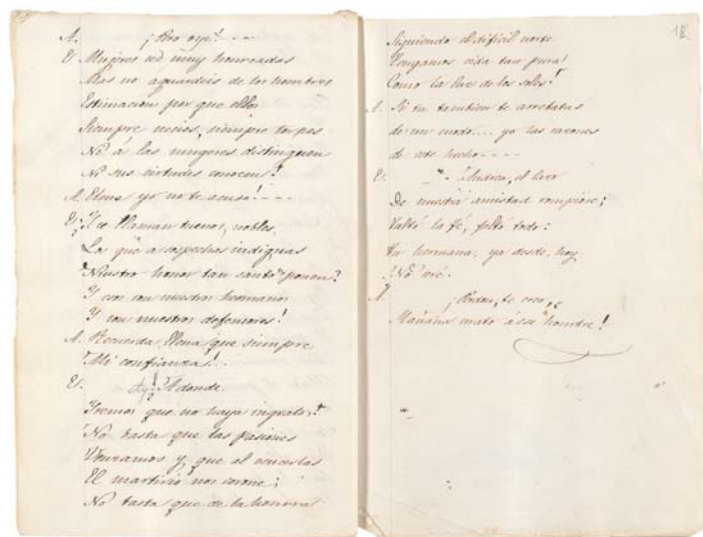 A. ¡Pero oye! - - -
E. Mujeres ud muy honradas
Mas no aguardeis de los hombres
Estimacion por que ellos
Siempre necios, siempre torpes
Ni á las mugeres distinguen
Ni sus virtudes conocen!
A. Elena yo no te acuso! - - -
E. Y se llaman buenos, nobles,
Los que a sospechas indignas
Nuestro honor tan santo ponen?
Y son nuestros hermanos
Y son nuestros defensores!
A. Recuerda, Elena que siempre
Mi confianza!..
E. Ay! A donde
Iremos que no haya ingratos?
No basta que las pasiones
Venzamos y que al vencerlas
El martirio nos corone;
No basta que de la honra
18
Siguiendo el dificil norte
Tengamos vida tan pura
Como la luz de los soles!
A. Si tu tambien te arrebatas
de un modo... yo las razones
de este hecho - - - -
E. Andrea, el lazo
De nuestra amistad rompióse;
Faltó la fé, faltó todo:
Tu hermana, ya desde hoy
No seré.
A. ¡Perdon, te creo,
Mañana mato á ese hombre!